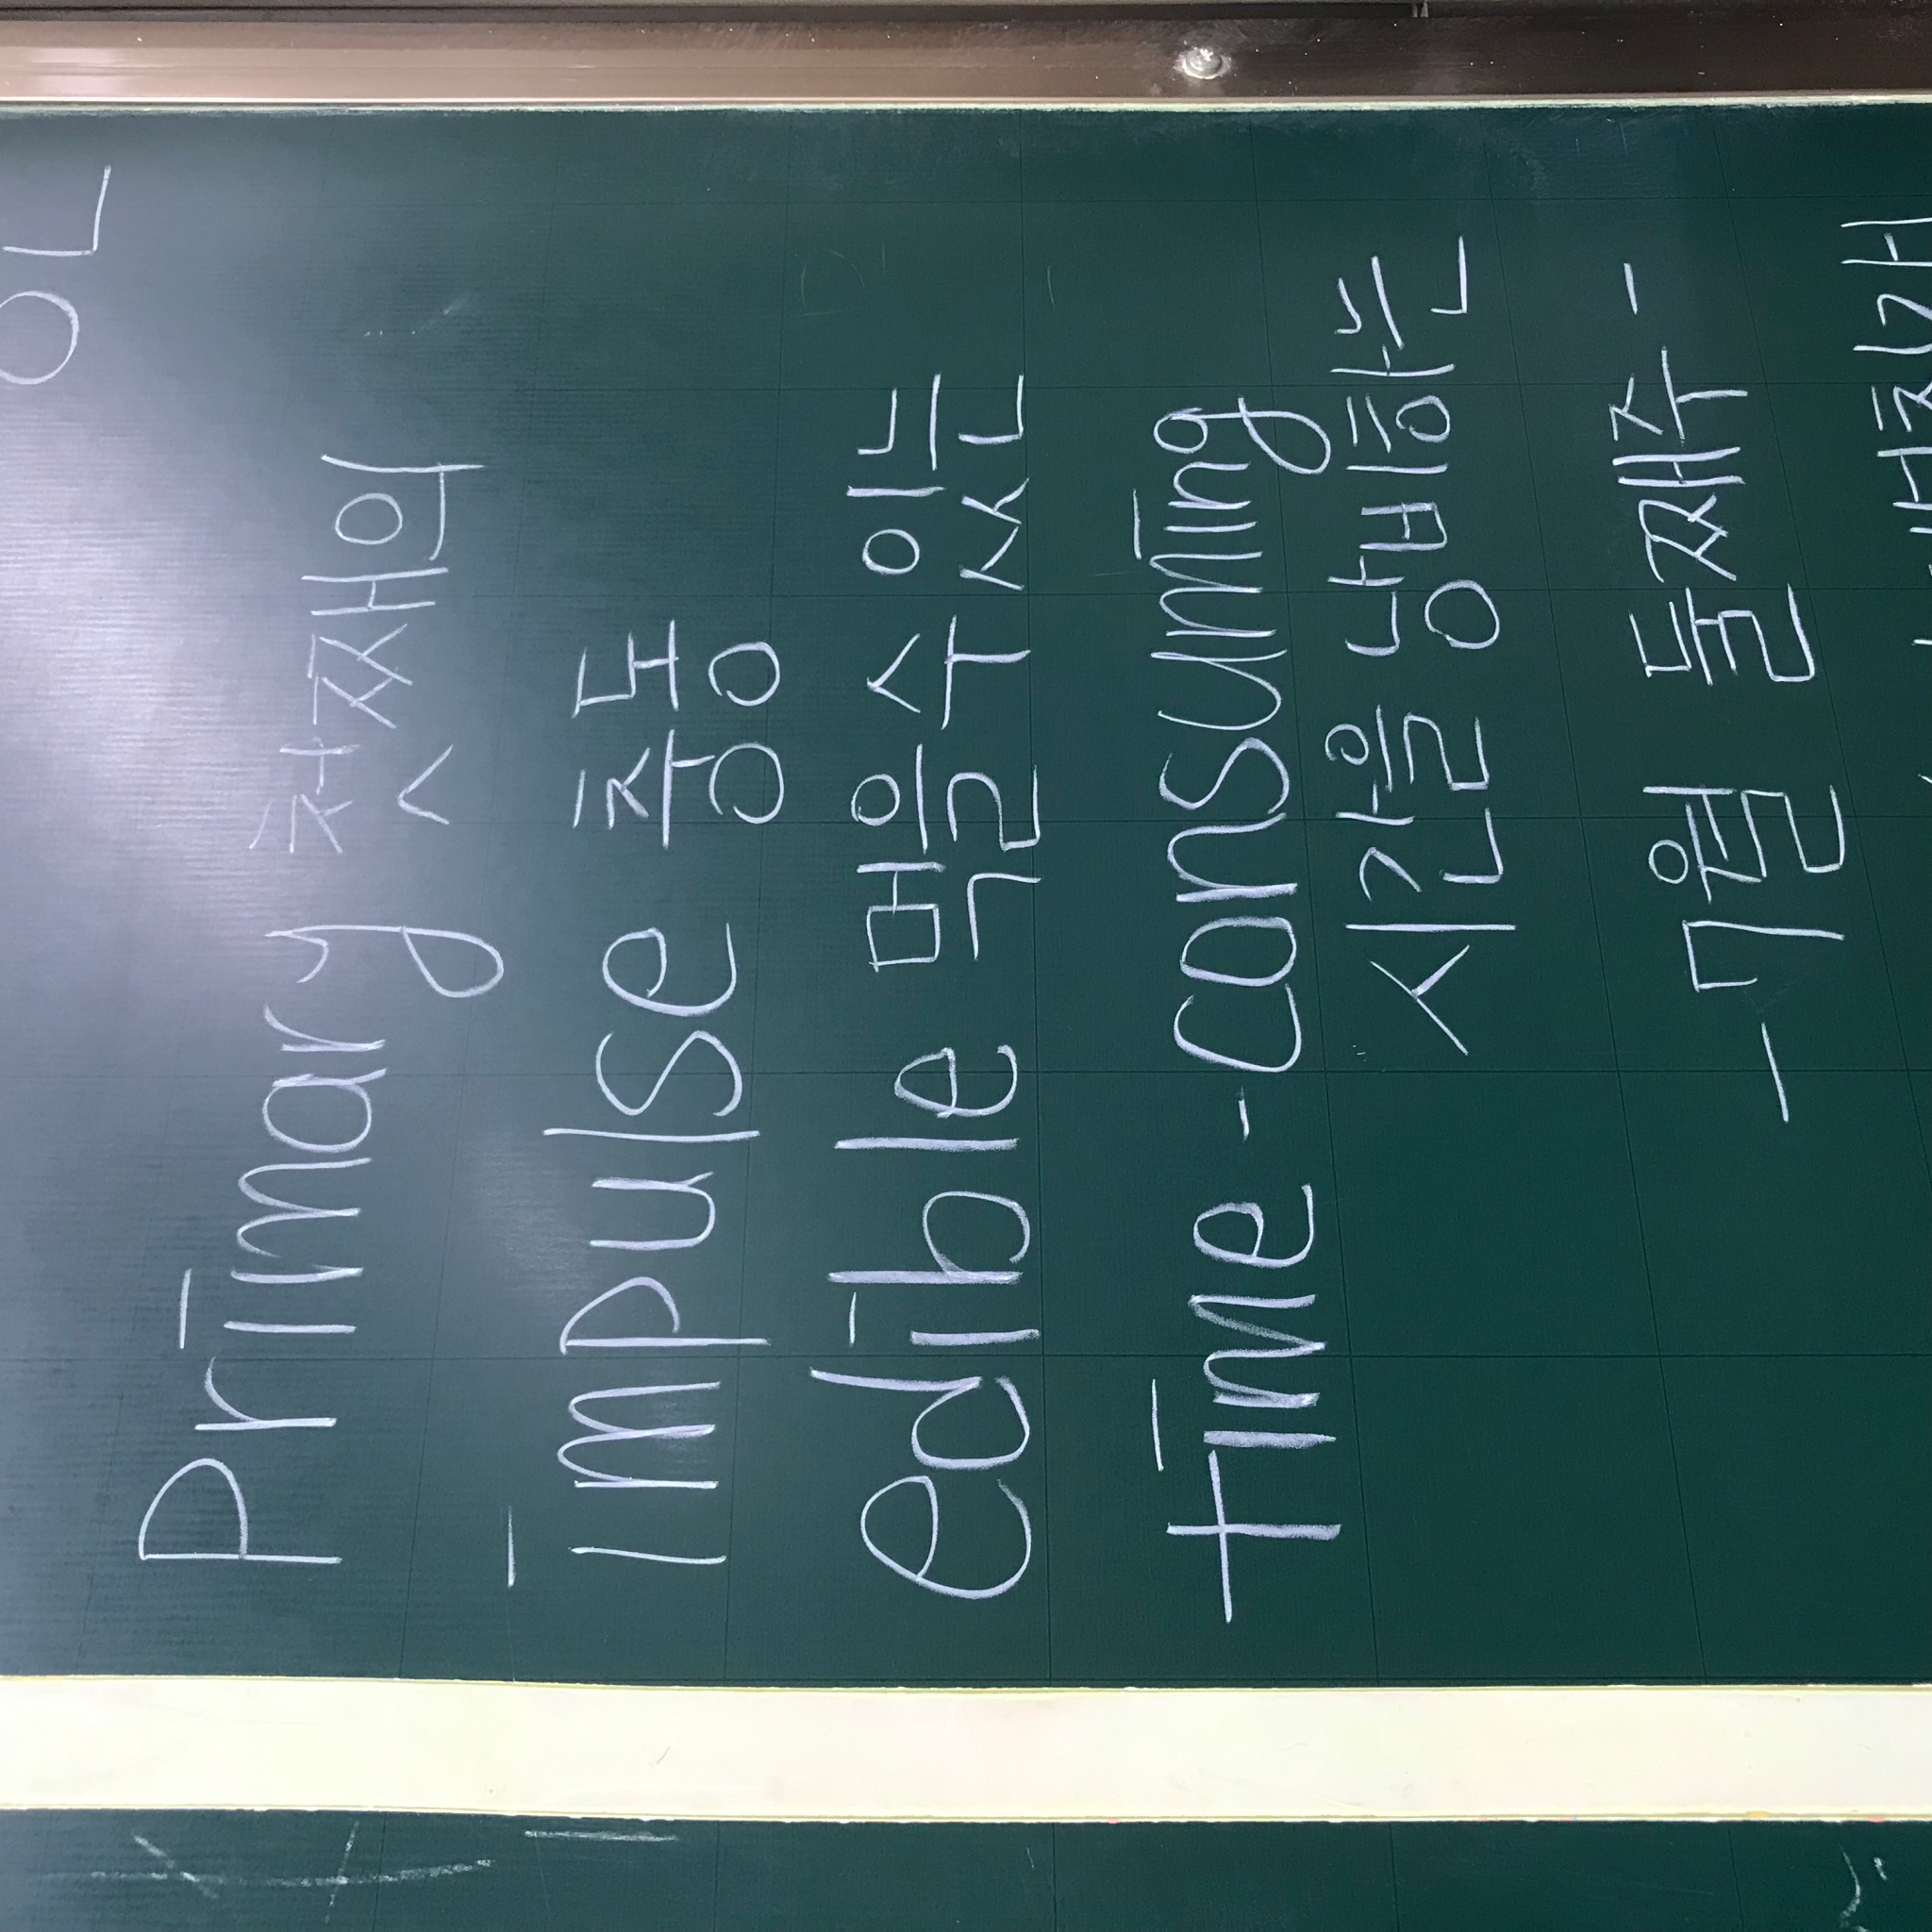 Primary 첫째의
impulse 충동
edible 먹을 수 있는
time - consuming
시간을 낭비하는
- 7월 둘째주 -